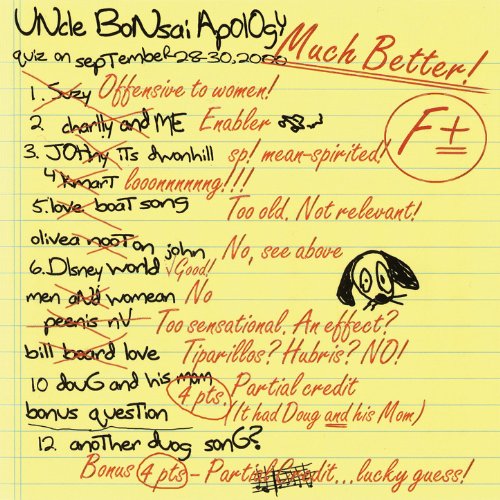 UNcle BoNsai ApolOgy
quiz on sepTembeR 28-30, 2000
Much Better!
F+
1. Suzy Offensive to women!
2 charlly and ME Enabler
3. JOHNy iTs dwonhill sp! mean-spirited!
4 KmarT looonnnnnng!!!
5. love boaT song Too old. Not relevant!
olivea nooTon john No, see above
6. DIsney world √Good!
men aNd womean No
peenis nV Too sensational. An effect?
bill board love Tiparillos? Hubris? NO!
10 douG and his mom 4 pts. Partial credit
bonus quesTIon (It had Doug and his Mom)
12 anoTher duog sonG?
Bonus 4 pts - Partial Credit...lucky guess!